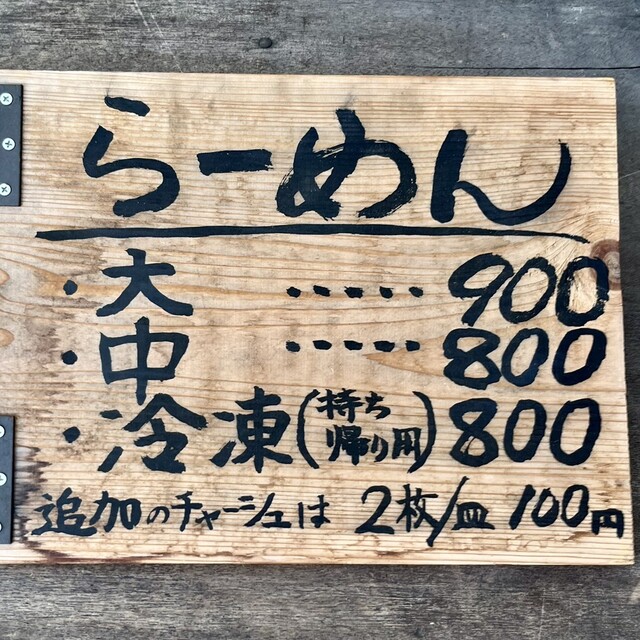 らーめん
・大 ・・・・・ 900
・中 ・・・・・ 800
・冷凍(持ち帰り用) 800
追加のチャーシュは 2枚/皿 100円